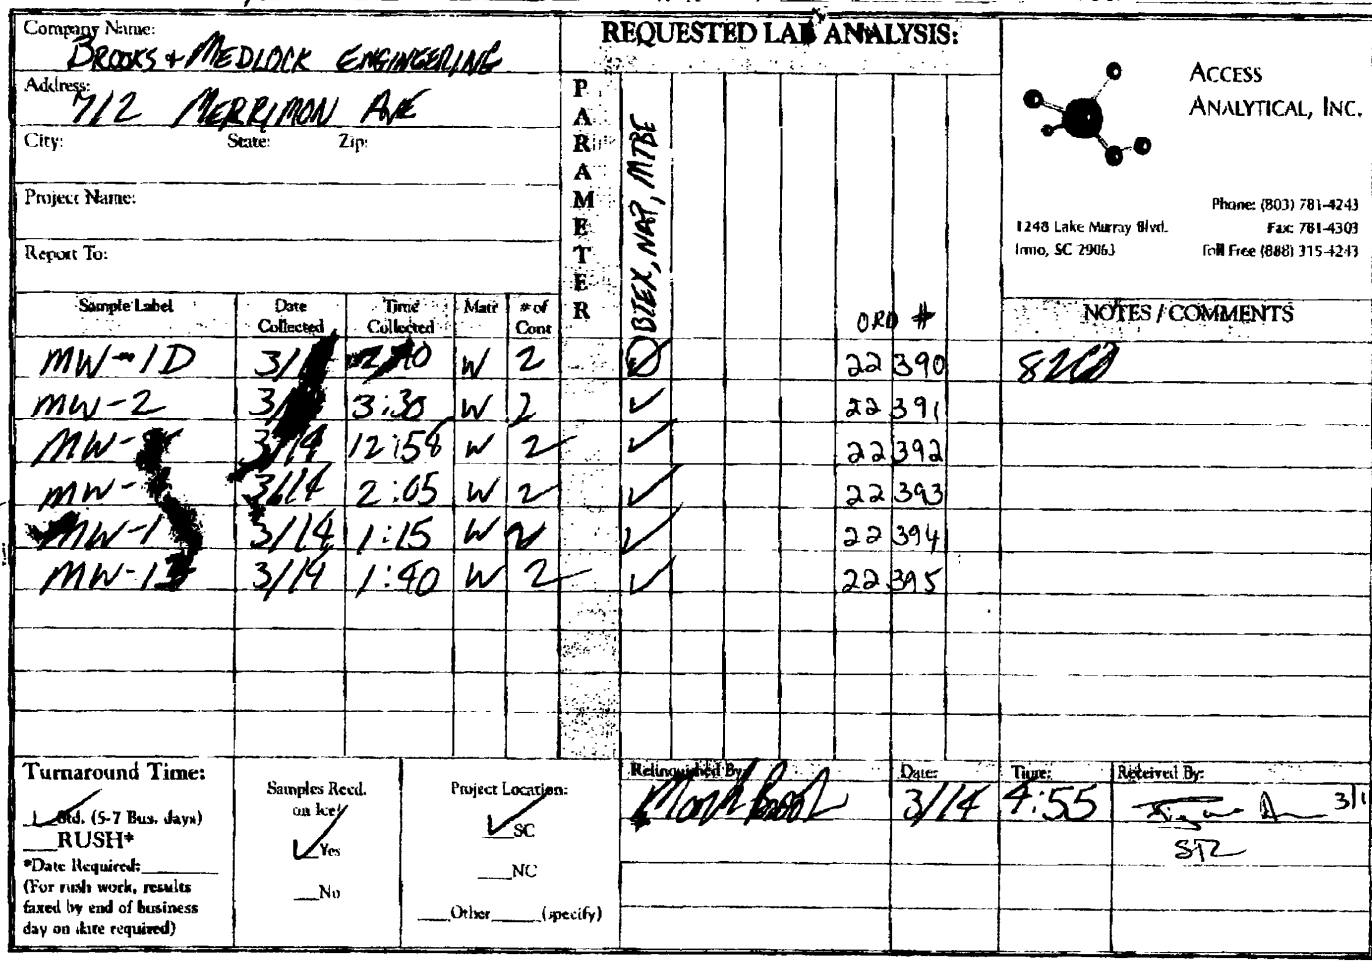 Company Name:
BROOKS + MEDLOCK ENGINEERING
Address:
712 MERRIMON AVE
City: State: Zip:
Project Name:
Report To:
REQUESTED LAB ANALYSIS:
PARAMETER
BTEX, NAP, MTBE
ORD #
ACCESS
ANALYTICAL, INC.
Phone: (803) 781-4243
1248 Lake Murray Blvd. Fax: 781-4303
Irmo, SC 29063 Toll Free (888) 315-4243
NOTES / COMMENTS
Sample Label Date Collected Time Collected Matr # of Cont
MW-1D 3/ W 2 ✓ 22390
MW-2 3/ 3:30 W 2 ✓ 22391
MW- 3/14 12:58 W 2 ✓ 22392
MW- 3/14 2:05 W 2 ✓ 22393
MW-1 3/14 1:15 W 2 ✓ 22394
MW-13 3/14 1:40 W 2 ✓ 22395
Turnaround Time:
✓ Std. (5-7 Bus. days)
___RUSH*
*Date Required:________
(For rush work, results
faxed by end of business
day on date required)
Samples Recd.
on Ice?
✓ Yes
___No
Project Location:
✓ SC
___NC
___Other_____(specify)
Relinquished By: Date: Time: Received By:
3/14 4:55